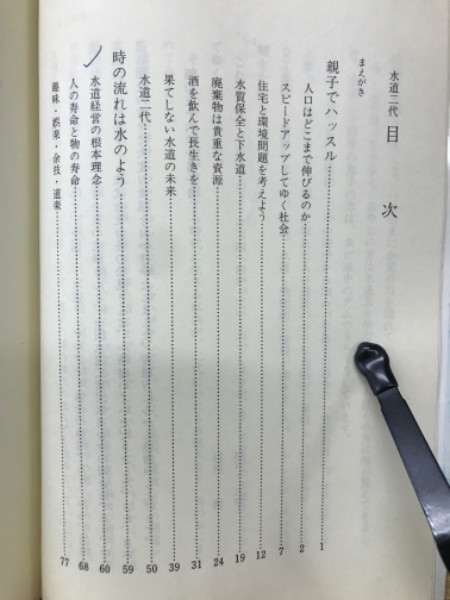 水道二代 目次
まえがき
親子でハッスル 1
人口はどこまで伸びるのか 2
スピードアップしてゆく社会 7
住宅と環境問題を考えよう 12
水質保全と下水道 19
廃棄物は貴重な資源 24
酒を飲んで長生きを 31
果てしない水道の未来 39
水道二代 50
時の流れは水のよう 59
水道経営の根本理念 60
人の寿命と物の寿命 68
趣味・娯楽・余技・道楽 77